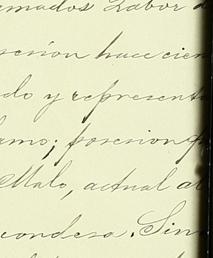 amados Labor d
esion hace cien
do y represent
amo; posesion
Malo, actual al
condesa. Sin